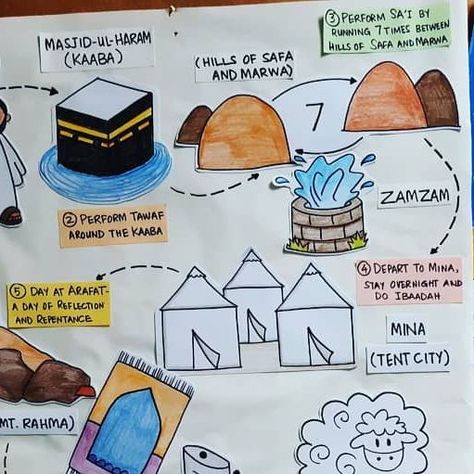 MASJID-UL-HARAM
(KAABA)
(HILLS OF SAFA
AND MARWA)
③ PERFORM SA'I BY
RUNNING 7 TIMES BETWEEN
HILLS OF SAFA AND MARWA
7
ZAMZAM
② PERFORM TAWAF
AROUND THE KAABA
④ DEPART TO MINA,
STAY OVERNIGHT AND
DO IBAADAH
⑤ DAY AT ARAFAT-
A DAY OF REFLECTION
AND REPENTANCE
MINA
(TENT CITY)
MT. RAHMA)